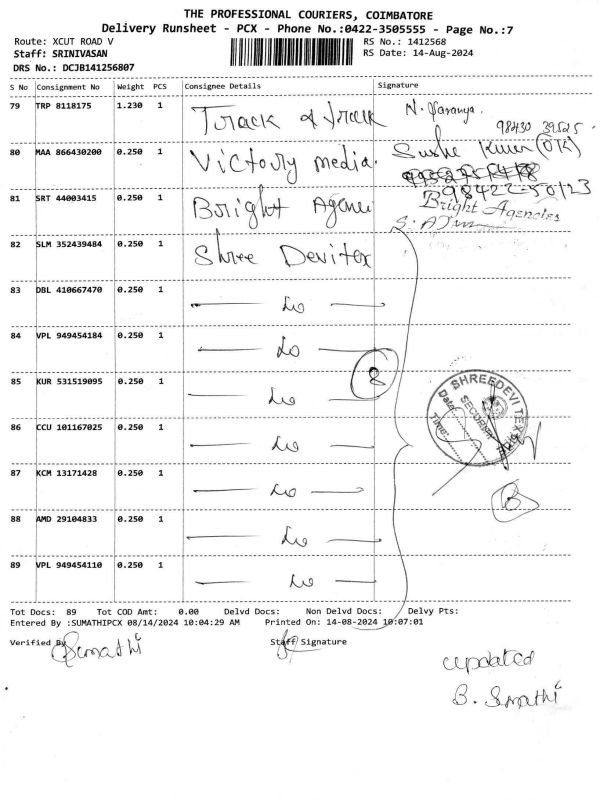 THE PROFESSIONAL COURIERS, COIMBATORE
Delivery Runsheet - PCX - Phone No.:0422-3505555 - Page No.:7
Route: XCUT ROAD V RS No.: 1412568
Staff: SRINIVASAN RS Date: 14-Aug-2024
DRS No.: DCJB141256807
S No Consignment No Weight PCS Consignee Details Signature
79 TRP 8118175 1.230 1 Track & Track N. Saranya.
98430 39525
80 MAA 866430200 0.250 1 Victory media.
98422-50123
81 SRT 44003415 0.250 1 Bright Agenci Bright Agencies
82 SLM 352439484 0.250 1 Shree Devitex
83 DBL 410667470 0.250 1 — do —
84 VPL 949454184 0.250 1 — do —
8
85 KUR 531519095 0.250 1 — do —
SHREEDEVI TEXTILE
SECURITY
Date:
Time:
86 CCU 101167025 0.250 1 — do —
87 KCM 13171428 0.250 1 — do —
B
88 AMD 29104833 0.250 1 — do —
89 VPL 949454110 0.250 1 — do —
Tot Docs: 89 Tot COD Amt: 0.00 Delvd Docs: Non Delvd Docs: Delvy Pts:
Entered By :SUMATHIPCX 08/14/2024 10:04:29 AM Printed On: 14-08-2024 10:07:01
Verified By Staff Signature
Sumathi
updated
B. Sumathi